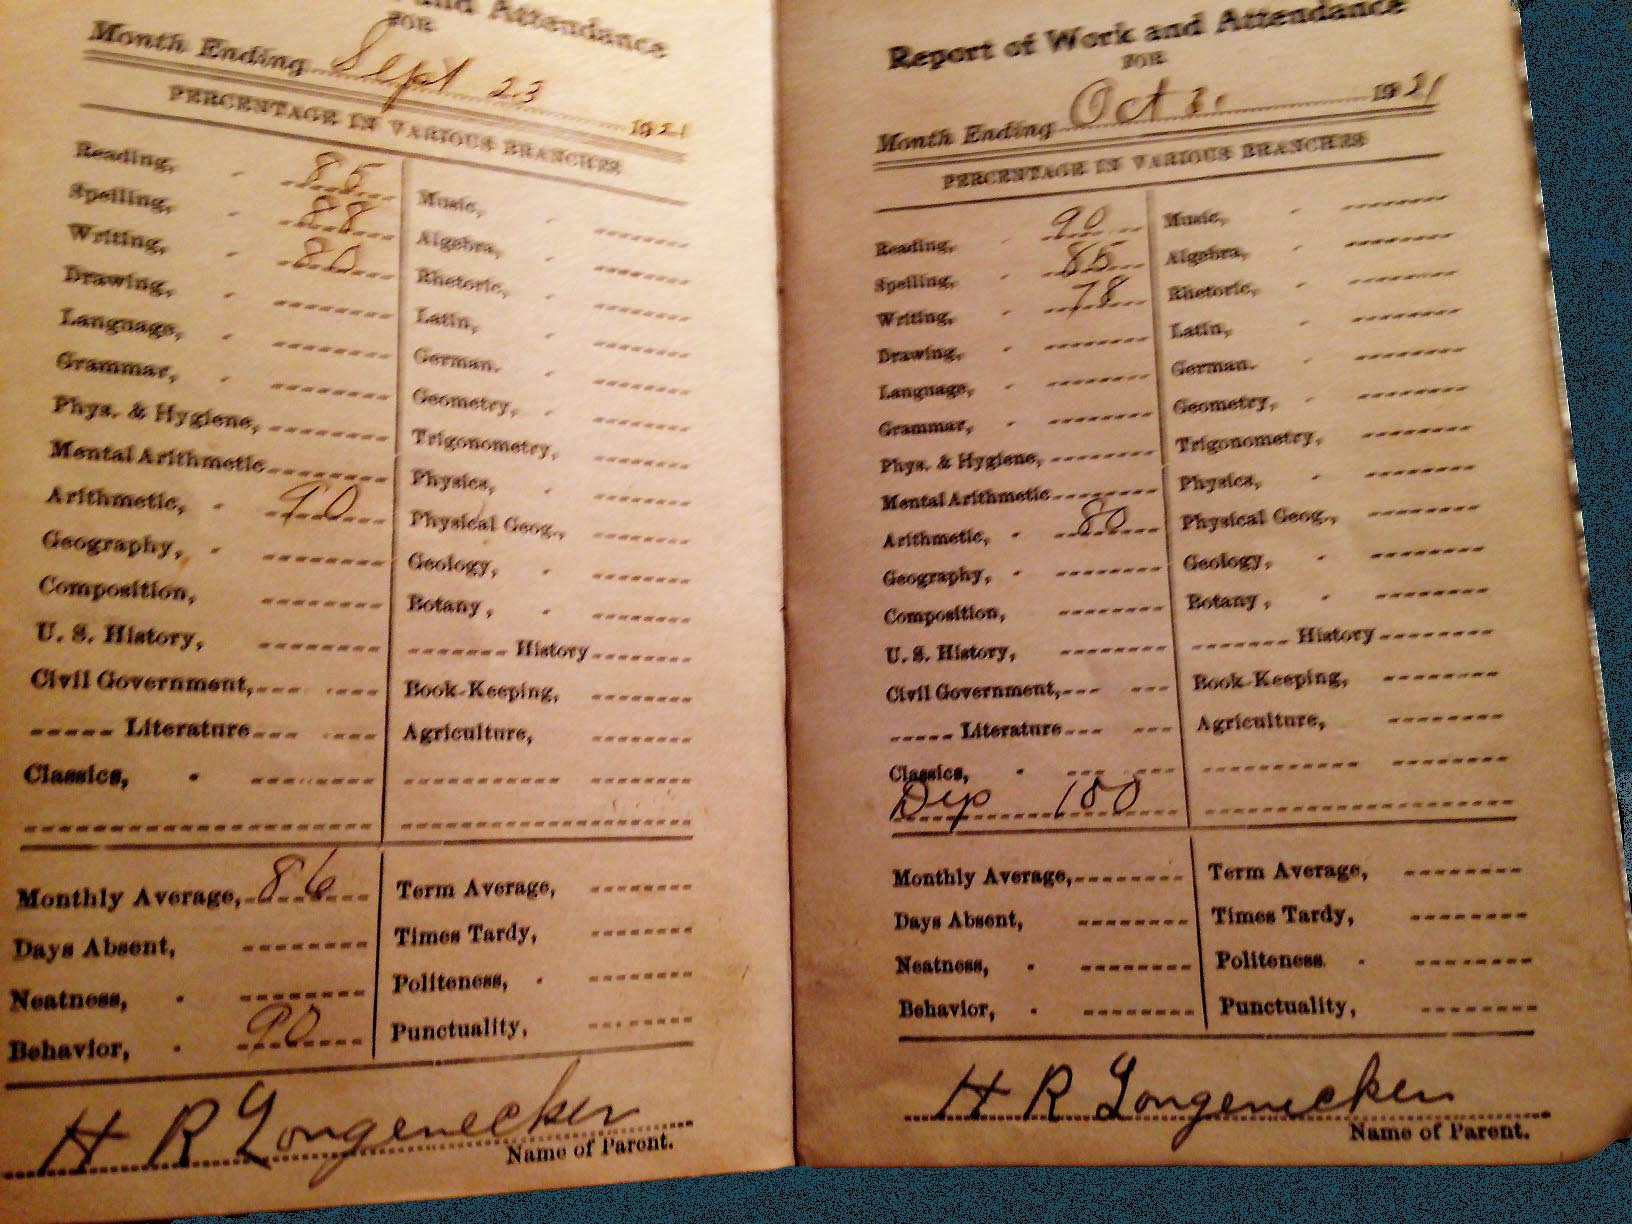 and Attendance
FOR
Month Ending Sept 23 1921
PERCENTAGE IN VARIOUS BRANCHES
Reading, 85
Spelling, 88
Writing, 80
Drawing,
Language,
Grammar,
Phys. & Hygiene,
Mental Arithmetic
Arithmetic, 90
Geography,
Composition,
U. S. History,
Civil Government,
Literature
Classics,
Music,
Algebra,
Rhetoric,
Latin,
German.
Geometry,
Trigonometry,
Physics,
Physical Geog.,
Geology,
Botany,
History
Book-Keeping,
Agriculture,
Monthly Average, 86
Days Absent,
Neatness,
Behavior, 90
Term Average,
Times Tardy,
Politeness,
Punctuality,
H R Longenecker
Name of Parent.
Report of Work and Attendance
FOR
Month Ending Oct 1921
PERCENTAGE IN VARIOUS BRANCHES
Reading, 90
Spelling, 85
Writing, 78
Drawing,
Language,
Grammar,
Phys. & Hygiene,
Mental Arithmetic
Arithmetic, 80
Geography,
Composition,
U. S. History,
Civil Government,
Literature
Classics,
Dep 100
Music,
Algebra,
Rhetoric,
Latin,
German.
Geometry,
Trigonometry,
Physics,
Physical Geog.,
Geology,
Botany,
History
Book-Keeping,
Agriculture,
Monthly Average,
Days Absent,
Neatness,
Behavior,
Term Average,
Times Tardy,
Politeness
Punctuality,
H R Longenecker
Name of Parent.